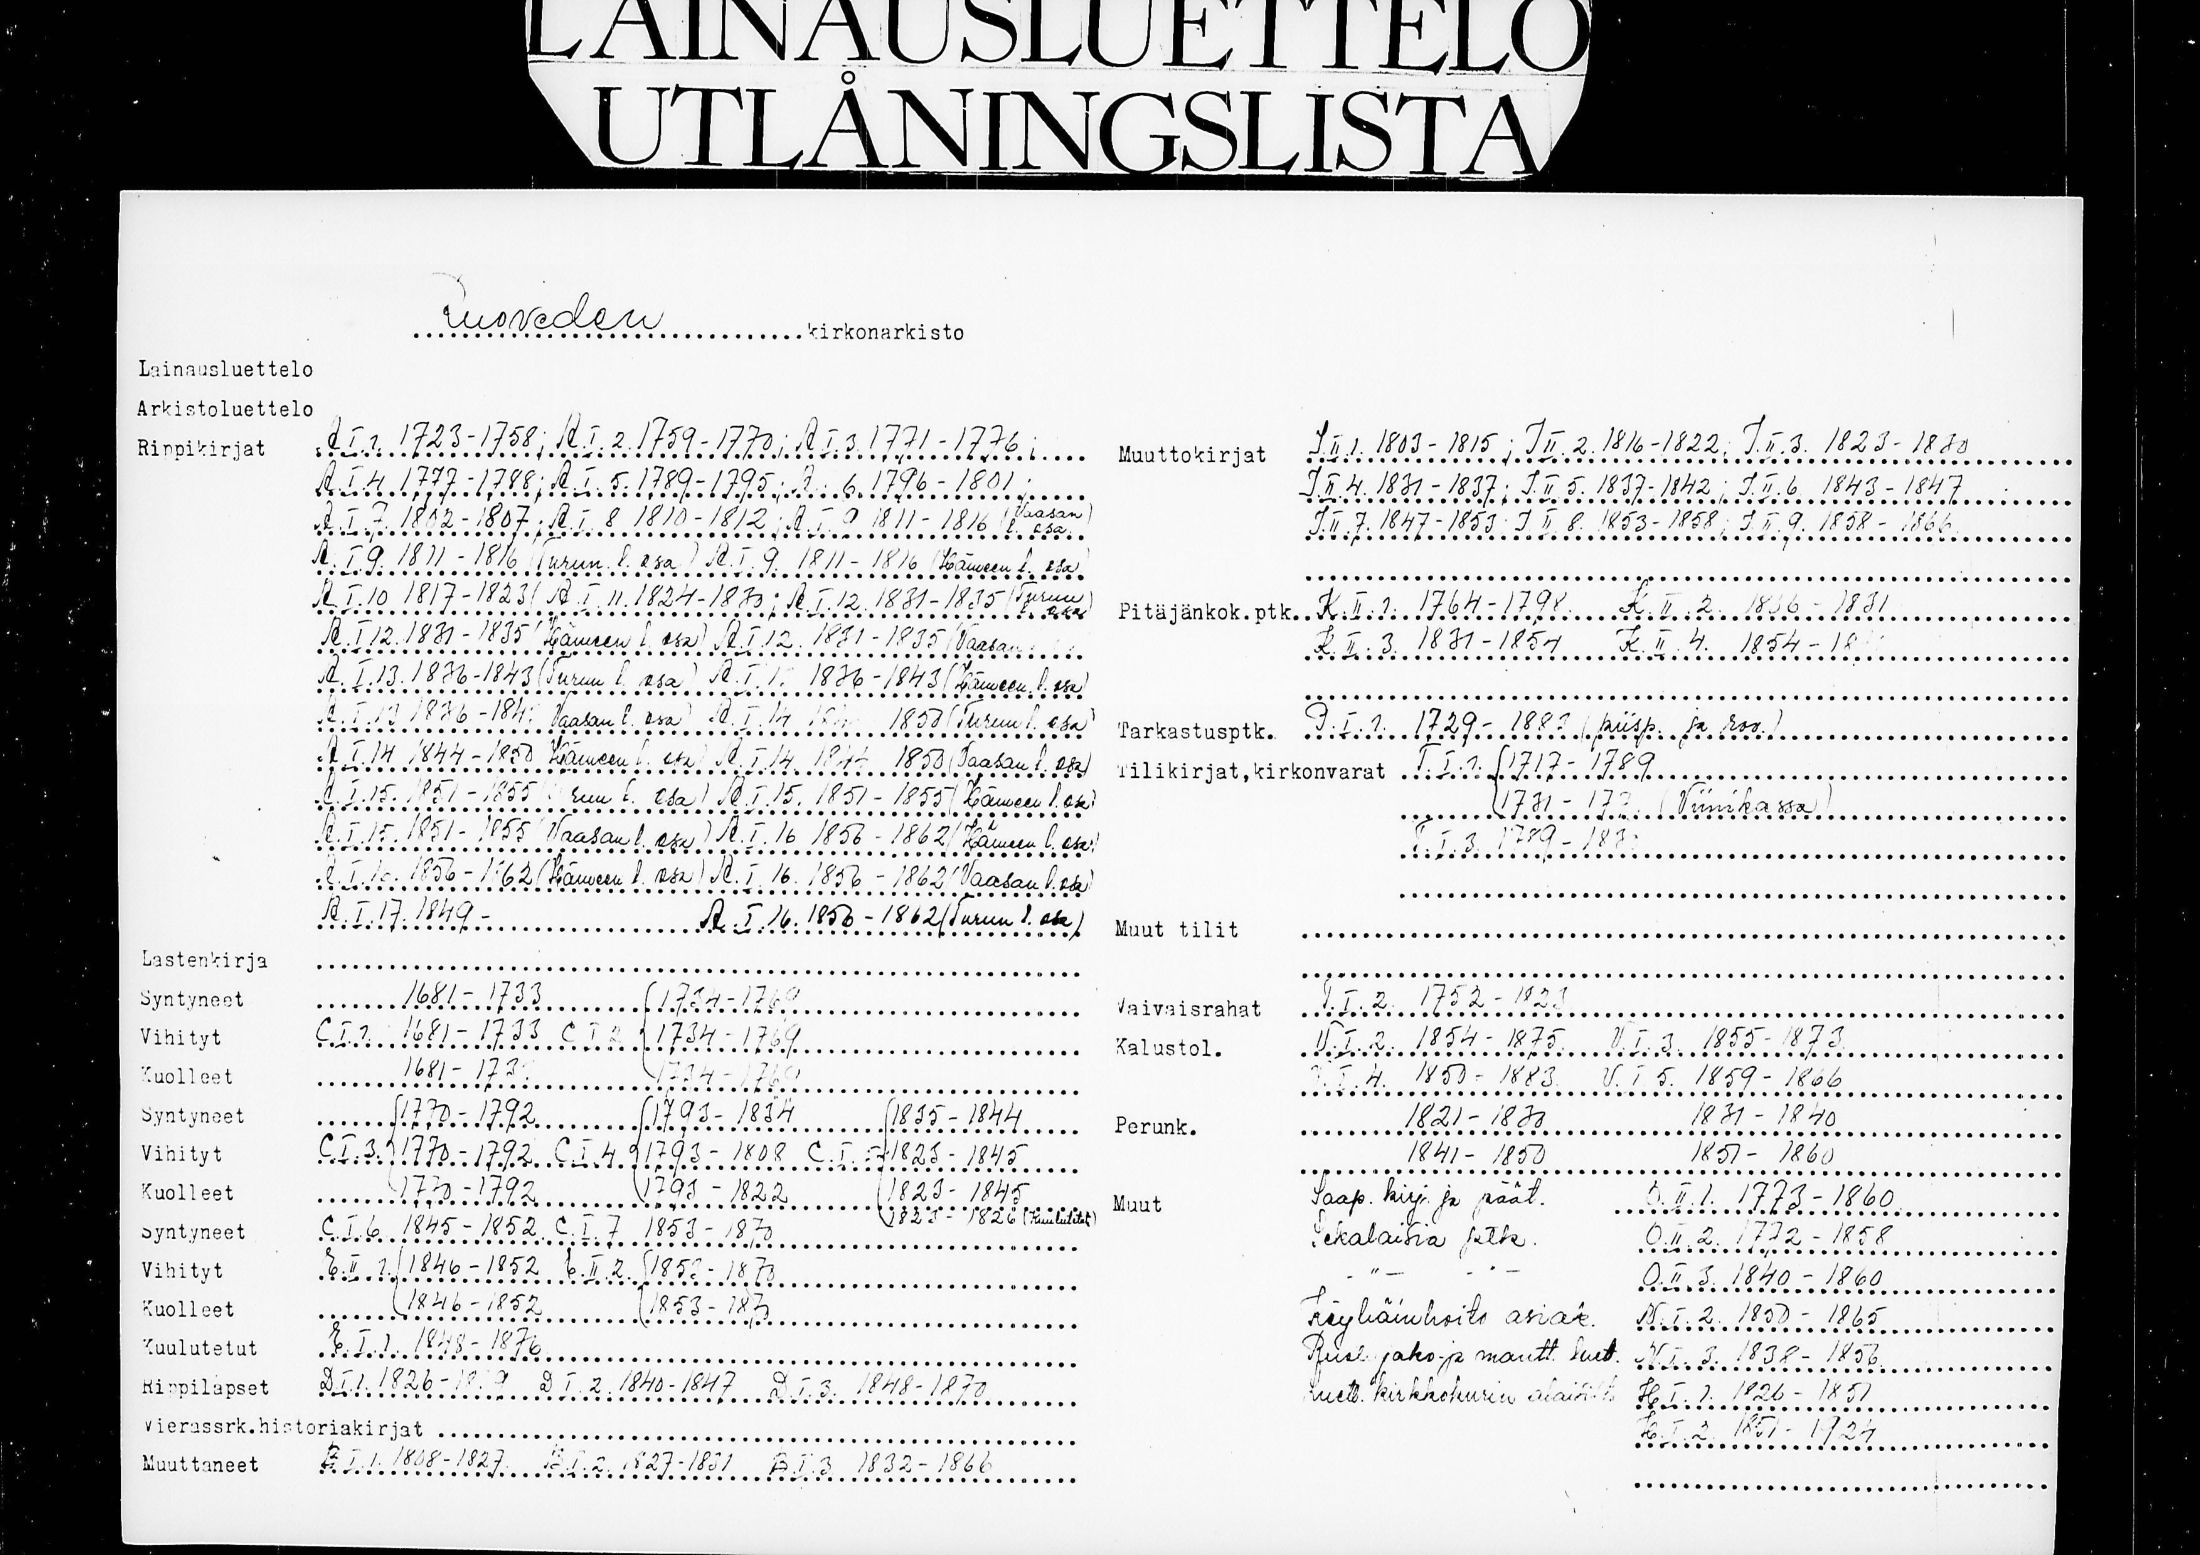 LAINAUSLUETTELO
UTLÅNINGSLISTA
Ruoveden kirkonarkisto
Lainausluettelo
Arkistoluettelo
Rippikirjat A.I.1. 1723-1758; A.I.2. 1759-1770; A.I.3. 1771-1776;
A.I.4. 1777-1788; A.I.5. 1789-1795; A.. 6. 1796-1801;
A.I.7. 1802-1807; A.I.8 1810-1812; A.I.9 1811-1816 (Vaasan l. osa)
A.I.9. 1811-1816 (Turun l. osa) A.I.9. 1811-1816 (Hämeen l. osa)
A.I.10 1817-1823; A.I.11. 1824-1830; A.I.12. 1831-1835 (Turun l. osa)
A.I.12. 1831-1835 (Hämeen l. osa) A.I.12. 1831-1835 (Vaasan
A.I.13. 1836-1843 (Turun l. osa) A.I.1 1836-1843 (Hämeen l. osa)
A.I.13 1836-184 Vaasan l. osa) A.I.14 1850 (Turun l. osa)
A.I.14 1844-1850 Hämeen l. osa) A.I.14. 1844 1850 (Vaasan l. osa)
A.I.15. 1851-1855 ( run l. osa) A.I.15. 1851-1855 (Hämeen l. osa)
A.I.15. 1851-1855 (Vaasan l. osa) A.I.16 1856-1862 (Hämeen l. osa)
A.I.16. 1856-1862 (Hämeen l. osa) A.I.16. 1856-1862 (Vaasan l. osa)
A.I.17. 1849- A.I.16. 1856-1862 (Turun l. osa)
Lastenkirja
Syntyneet 1681-1733 1734-1769
Vihityt C I 1. 1681-1733 C I 2 1734-1769
Kuolleet 1681-173 1734-1769
Syntyneet 1770-1792 1793-1834 1835-1844
Vihityt C.I.3. 1770-1792 C.I.4 1793-1808 C.I.5 1823-1845
Kuolleet 1770-1792 1793-1822 1823-1845
1823-1826 (Kuulutetut)
Syntyneet C.I.6. 1845-1852 C.I.7 1853-1870
Vihityt E.II.1. 1846-1852 E.II.2. 1853-1870
Kuolleet 1846-1852 1853-187
Kuulutetut E.I.1. 1848-1876
Rippilapset D I 1. 1826-18 9 D I.2. 1840-1847 D.I.3. 1848-1870
Vierassrk.historiakirjat
Muuttaneet B I.1. 1808-1827 B.I.2. 1827-1831 B.I.3 1832-1866
Muuttokirjat I.II.1. 1803-1815; I II.2. 1816-1822; I.II.3. 1823-1830
I.II.4. 1831-1837; I.II.5. 1837-1842; I.II.6 1843-1847
I.II.7. 1847-1853; I II 8. 1853-1858; I.II.9. 1858-1866
Pitäjänkok.ptk. K.II.1. 1764-1798 K.II.2. 1836-1831
K.II.3. 1831-1854 K.II.4. 1854-18
Tarkastusptk. P.I.1. 1729-188 (piisp. ja rov.)
Tilikirjat,kirkonvarat T.I.1. 1717-1789
1731-17 (Viinikassa)
T.I.3. 1789-183
Muut tilit
Vaivaisrahat T.I.2. 1752-1823
Kalustol. V.I.2. 1854-1875 V.I.3. 1855-1873
V.I.4. 1850-1883 V.I.5. 1859-1866
Perunk. 1821-1830 1831-1840
1841-1850 1851-1860
Muut Saap. kirj. ja päät. O.II.1. 1773-1860
Sekalaisia ptk. O.II.2. 1772-1858
- " - - " - O.II.3. 1840-1860
Köyhäinhoito asiak. N.I.2. 1850-1865
Ruse. jako-ja mantt. luet. N.I.3. 1838-1856
Luett. kirkkokurin alaisista H.I.1. 1826-1851
H.I.2. 1851-1924